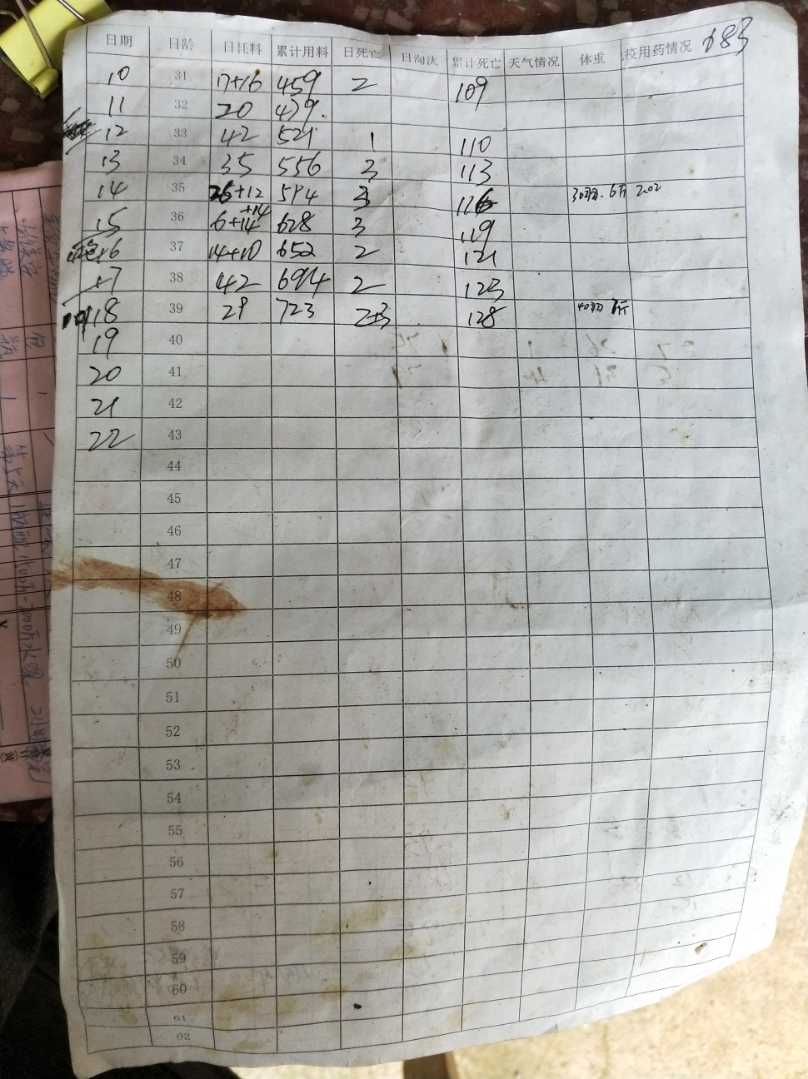 日期 日龄 日耗料 累计用料 日死亡 日淘汰 累计死亡 天气情况 体重 疫用药情况 183
10 31 17+16 459 2 109
11 32 20 479
12 33 42 521 1 110
13 34 35 556 3 113
14 35 26+12 594 3 116 6斤 2.02
15 36 6+14+14 628 3 119
16 37 14+10 652 2 121
17 38 42 694 2 123
18 39 29 723 2+3 128 7斤
19 40
20 41
21 42
22 43
44
45
46
47
48
49
50
51
52
53
54
55
56
57
58
59
60
61
62